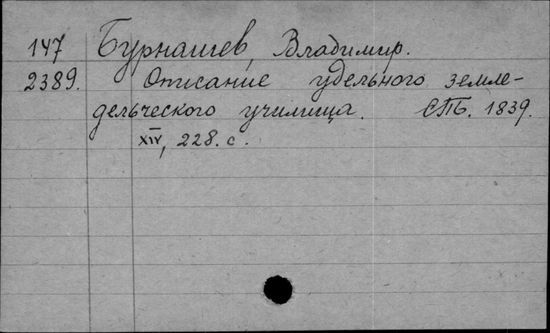 147 Бурнашев, Владимир.
2389. Описание удельного земле-
дельческого училища. СПБ. 1839.
XIV, 228. с.